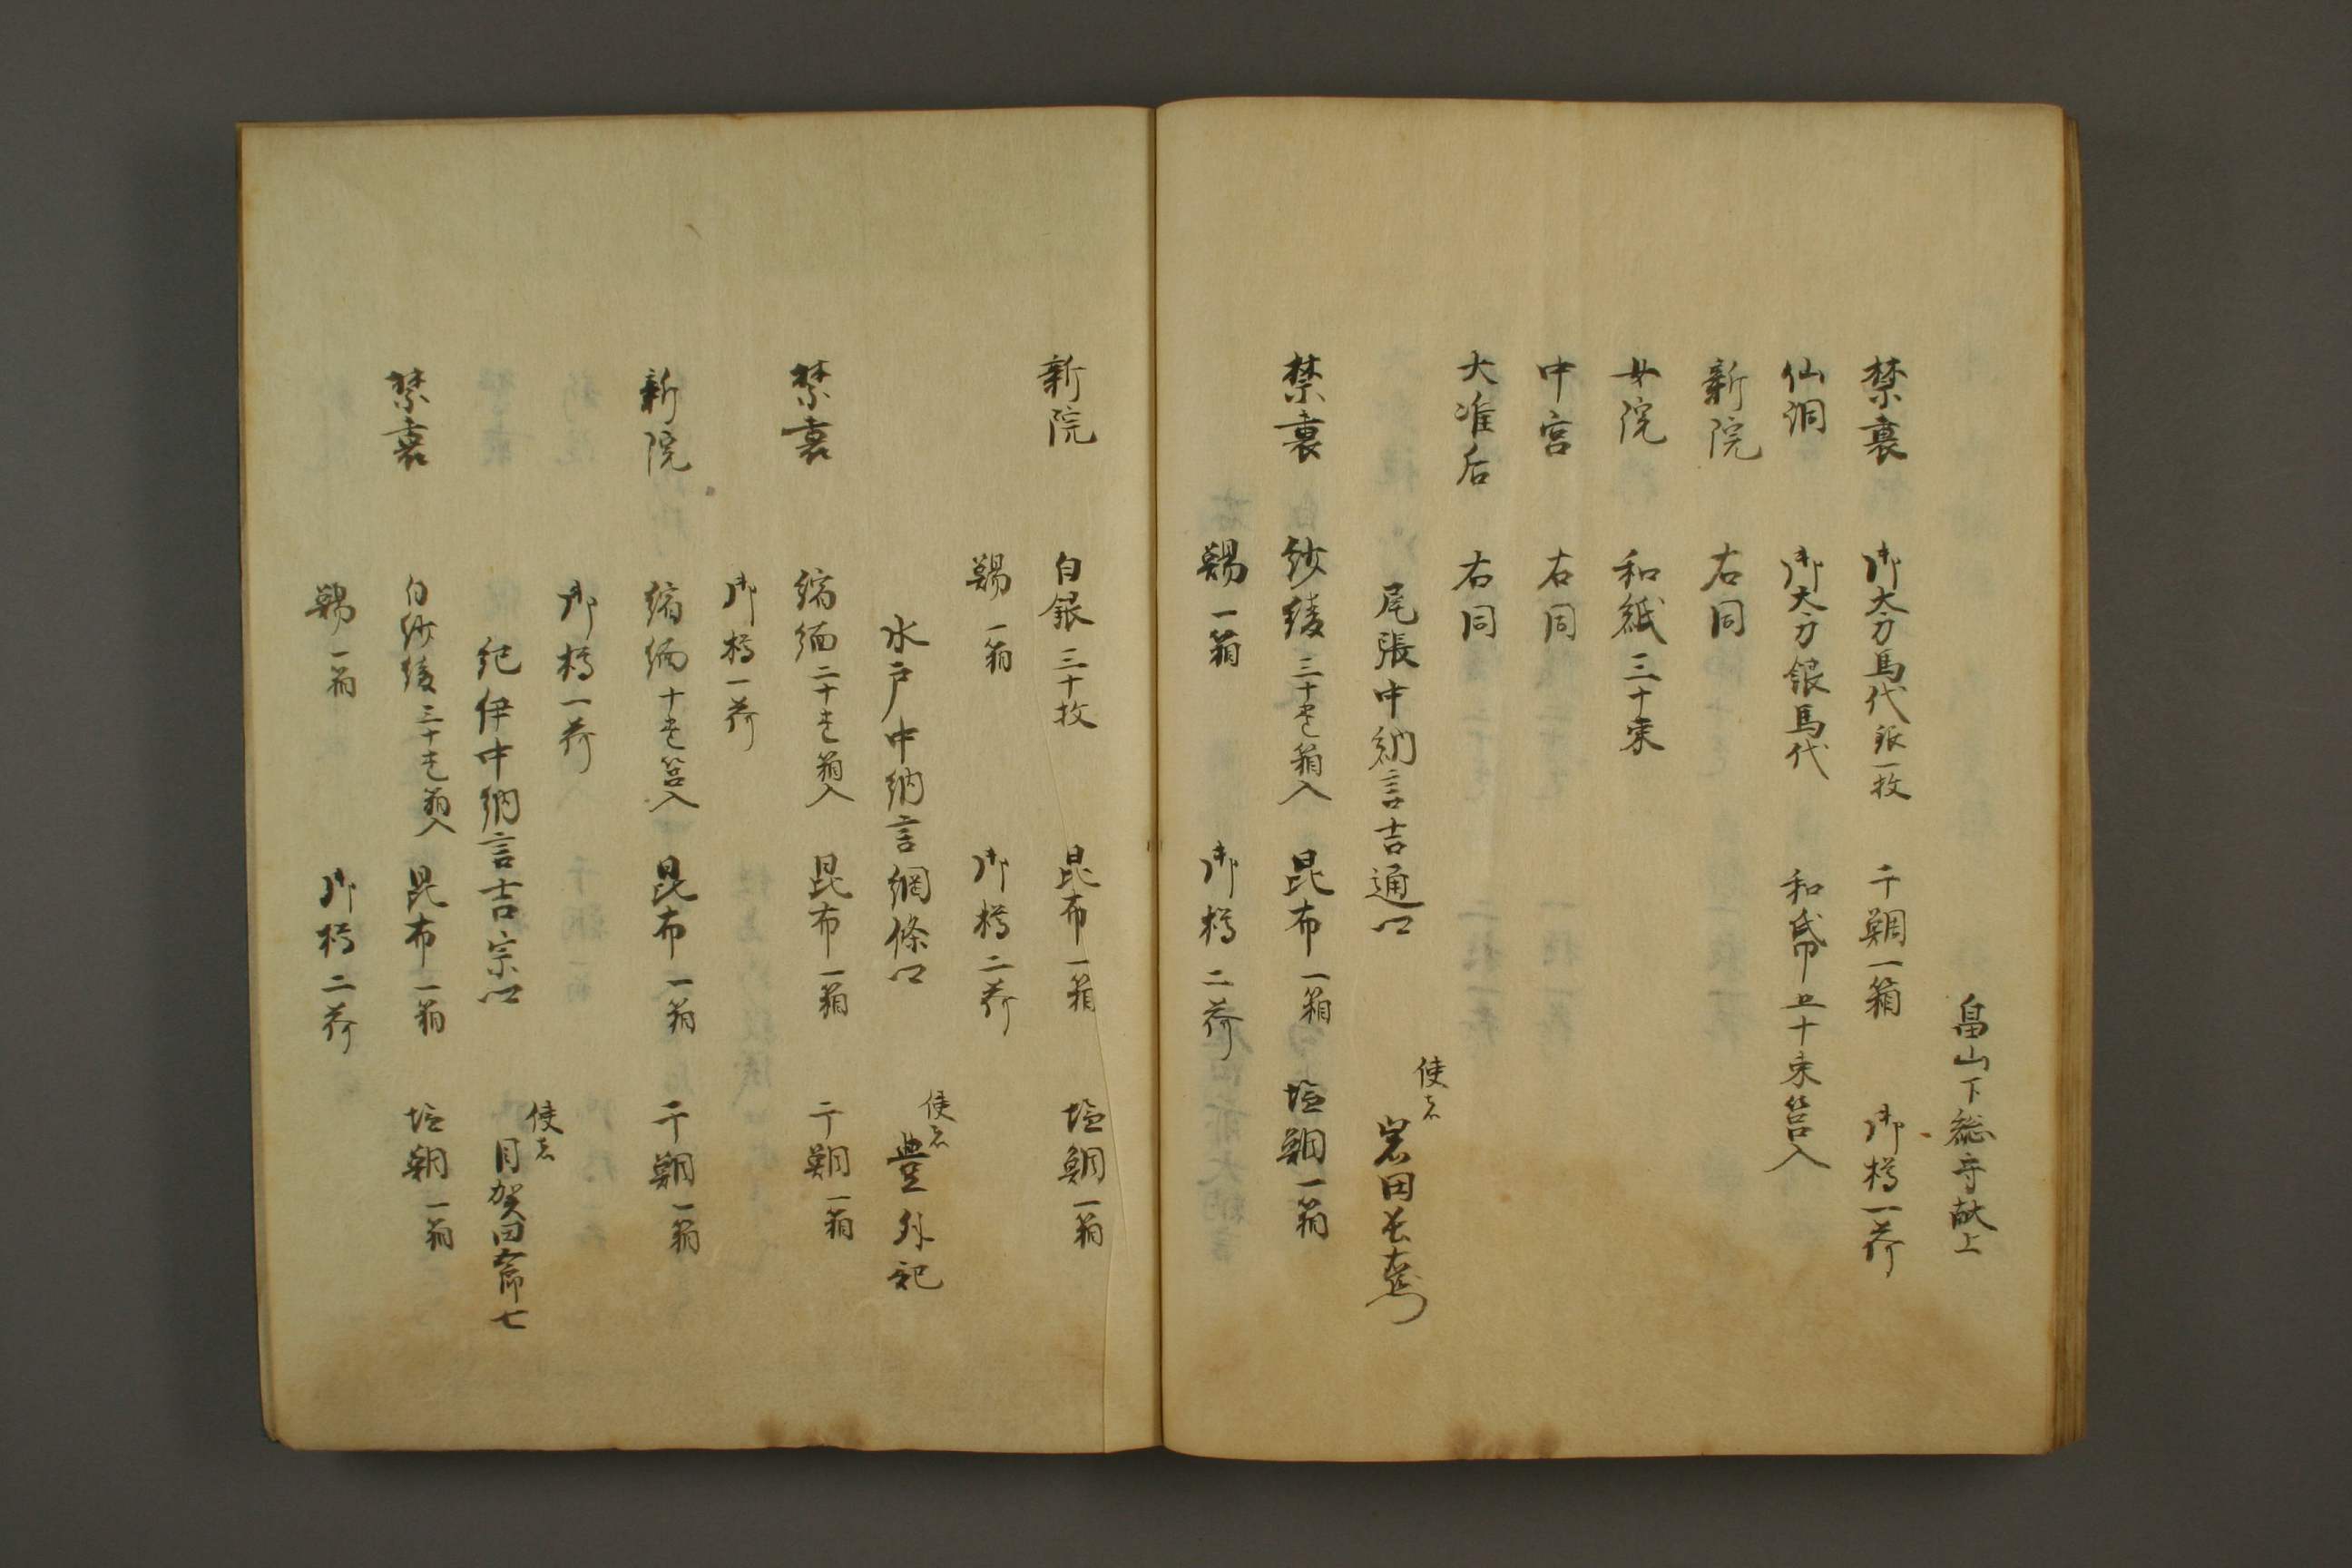 畠山下総守献上
禁裏 御太刀馬代銀一枚 干鯛一箱 御樽一荷
仙洞 御太刀銀馬代 和帋五十束筥入
新院 右同
女院 和紙三十束
中宮 右同
大准后 右同
尾張中納言吉通卿 使者
禁裏 紗綾三十巻箱入 昆布一箱 塩鯛一箱
鶴一箱 御樽二荷
新院 白銀三十枚 昆布一箱 塩鯛一箱
鶴一箱 御樽二荷
水戸中納言綱條卿 使者 豊外記
禁裏 縮緬二十巻箱入 昆布一箱 干鯛一箱
御樽一荷
新院 縮緬十巻筥入 昆布一箱 干鯛一箱
御樽一荷
紀伊中納言吉宗卿 使者
禁裏 白紗綾三十巻箱入 昆布一箱 塩鯛一箱
御樽二荷